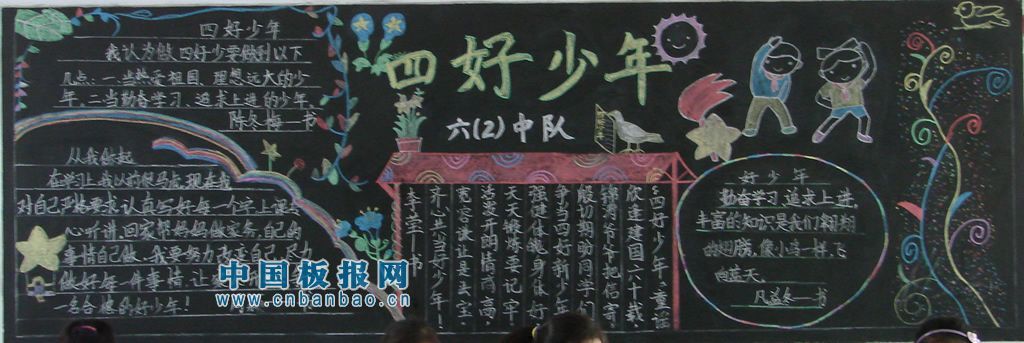 四好少年
六(2)中队
四好少年
我认为做四好少要做到以下
几点：一当热爱祖国、理想远大的少
年、二当勤奋学习、追求上进的少年、
陈冬梅一书
从我做起
在学习上我以前很马虎,现在我
对自己严格要求,认真写好每一个字,上课专
心听讲,回家帮妈妈做家务,自己的
事情自己做、我要努力改变自己
做好每一件事情,让
一名合格的好少年!
四好少年童谣
欣逢建国六十载,
锦涛爷爷把信寄
殷切期盼同学们
争当四好新少年
强健体魄身体好
天天锻炼要记牢
活泼开朗情
宽容谦让是
齐心共当好少年
李莹一书
好少年
勤奋学习,追求上进
丰富的知识是我们翱翔
的翅膀,像小鸟一样,飞
向蓝天、
凡益冬一书
中国板报网
www.cnbanbao.cn